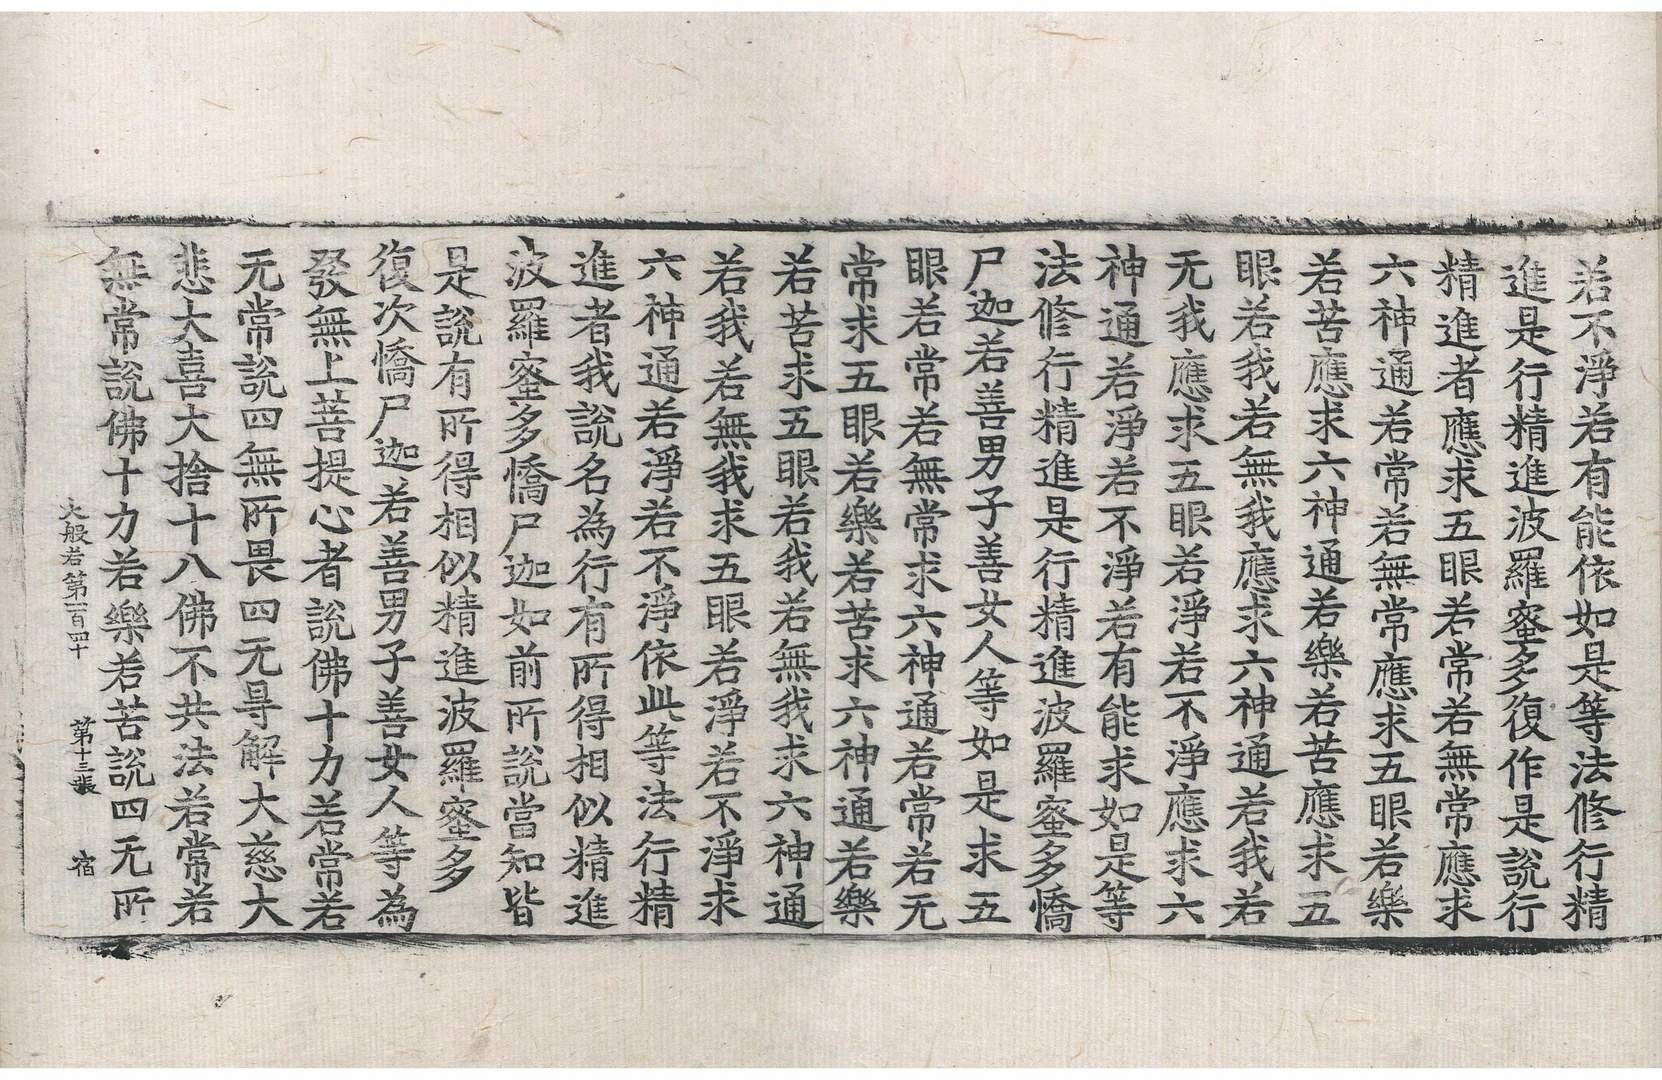 若不淨若有能依如是等法修行精
進是行精進波羅蜜多復作是說行
精進者應求五眼若常若無常應求
六神通若常若無常應求五眼若樂
若苦應求六神通若樂若苦應求五
眼若我若無我應求六神通若我若
无我應求五眼若淨若不淨應求六
神通若淨若不淨若有能求如是等
法修行精進是行精進波羅蜜多憍
尸迦若善男子善女人等如是求五
眼若常若無常求六神通若常若无
常求五眼若樂若苦求六神通若樂
若苦求五眼若我若無我求六神通
若我若無我求五眼若淨若不淨求
六神通若淨若不淨依此等法行精
進者我說名為行有所得相似精進
波羅蜜多憍尸迦如前所說當知皆
是說有所得相似精進波羅蜜多
復次憍尸迦若善男子善女人等為
發無上菩提心者說佛十力若常若
无常說四無所畏四无㝵解大慈大
悲大喜大捨十八佛不共法若常若
無常說佛十力若樂若苦說四无所
大般若第一百四十 第十三張 宿